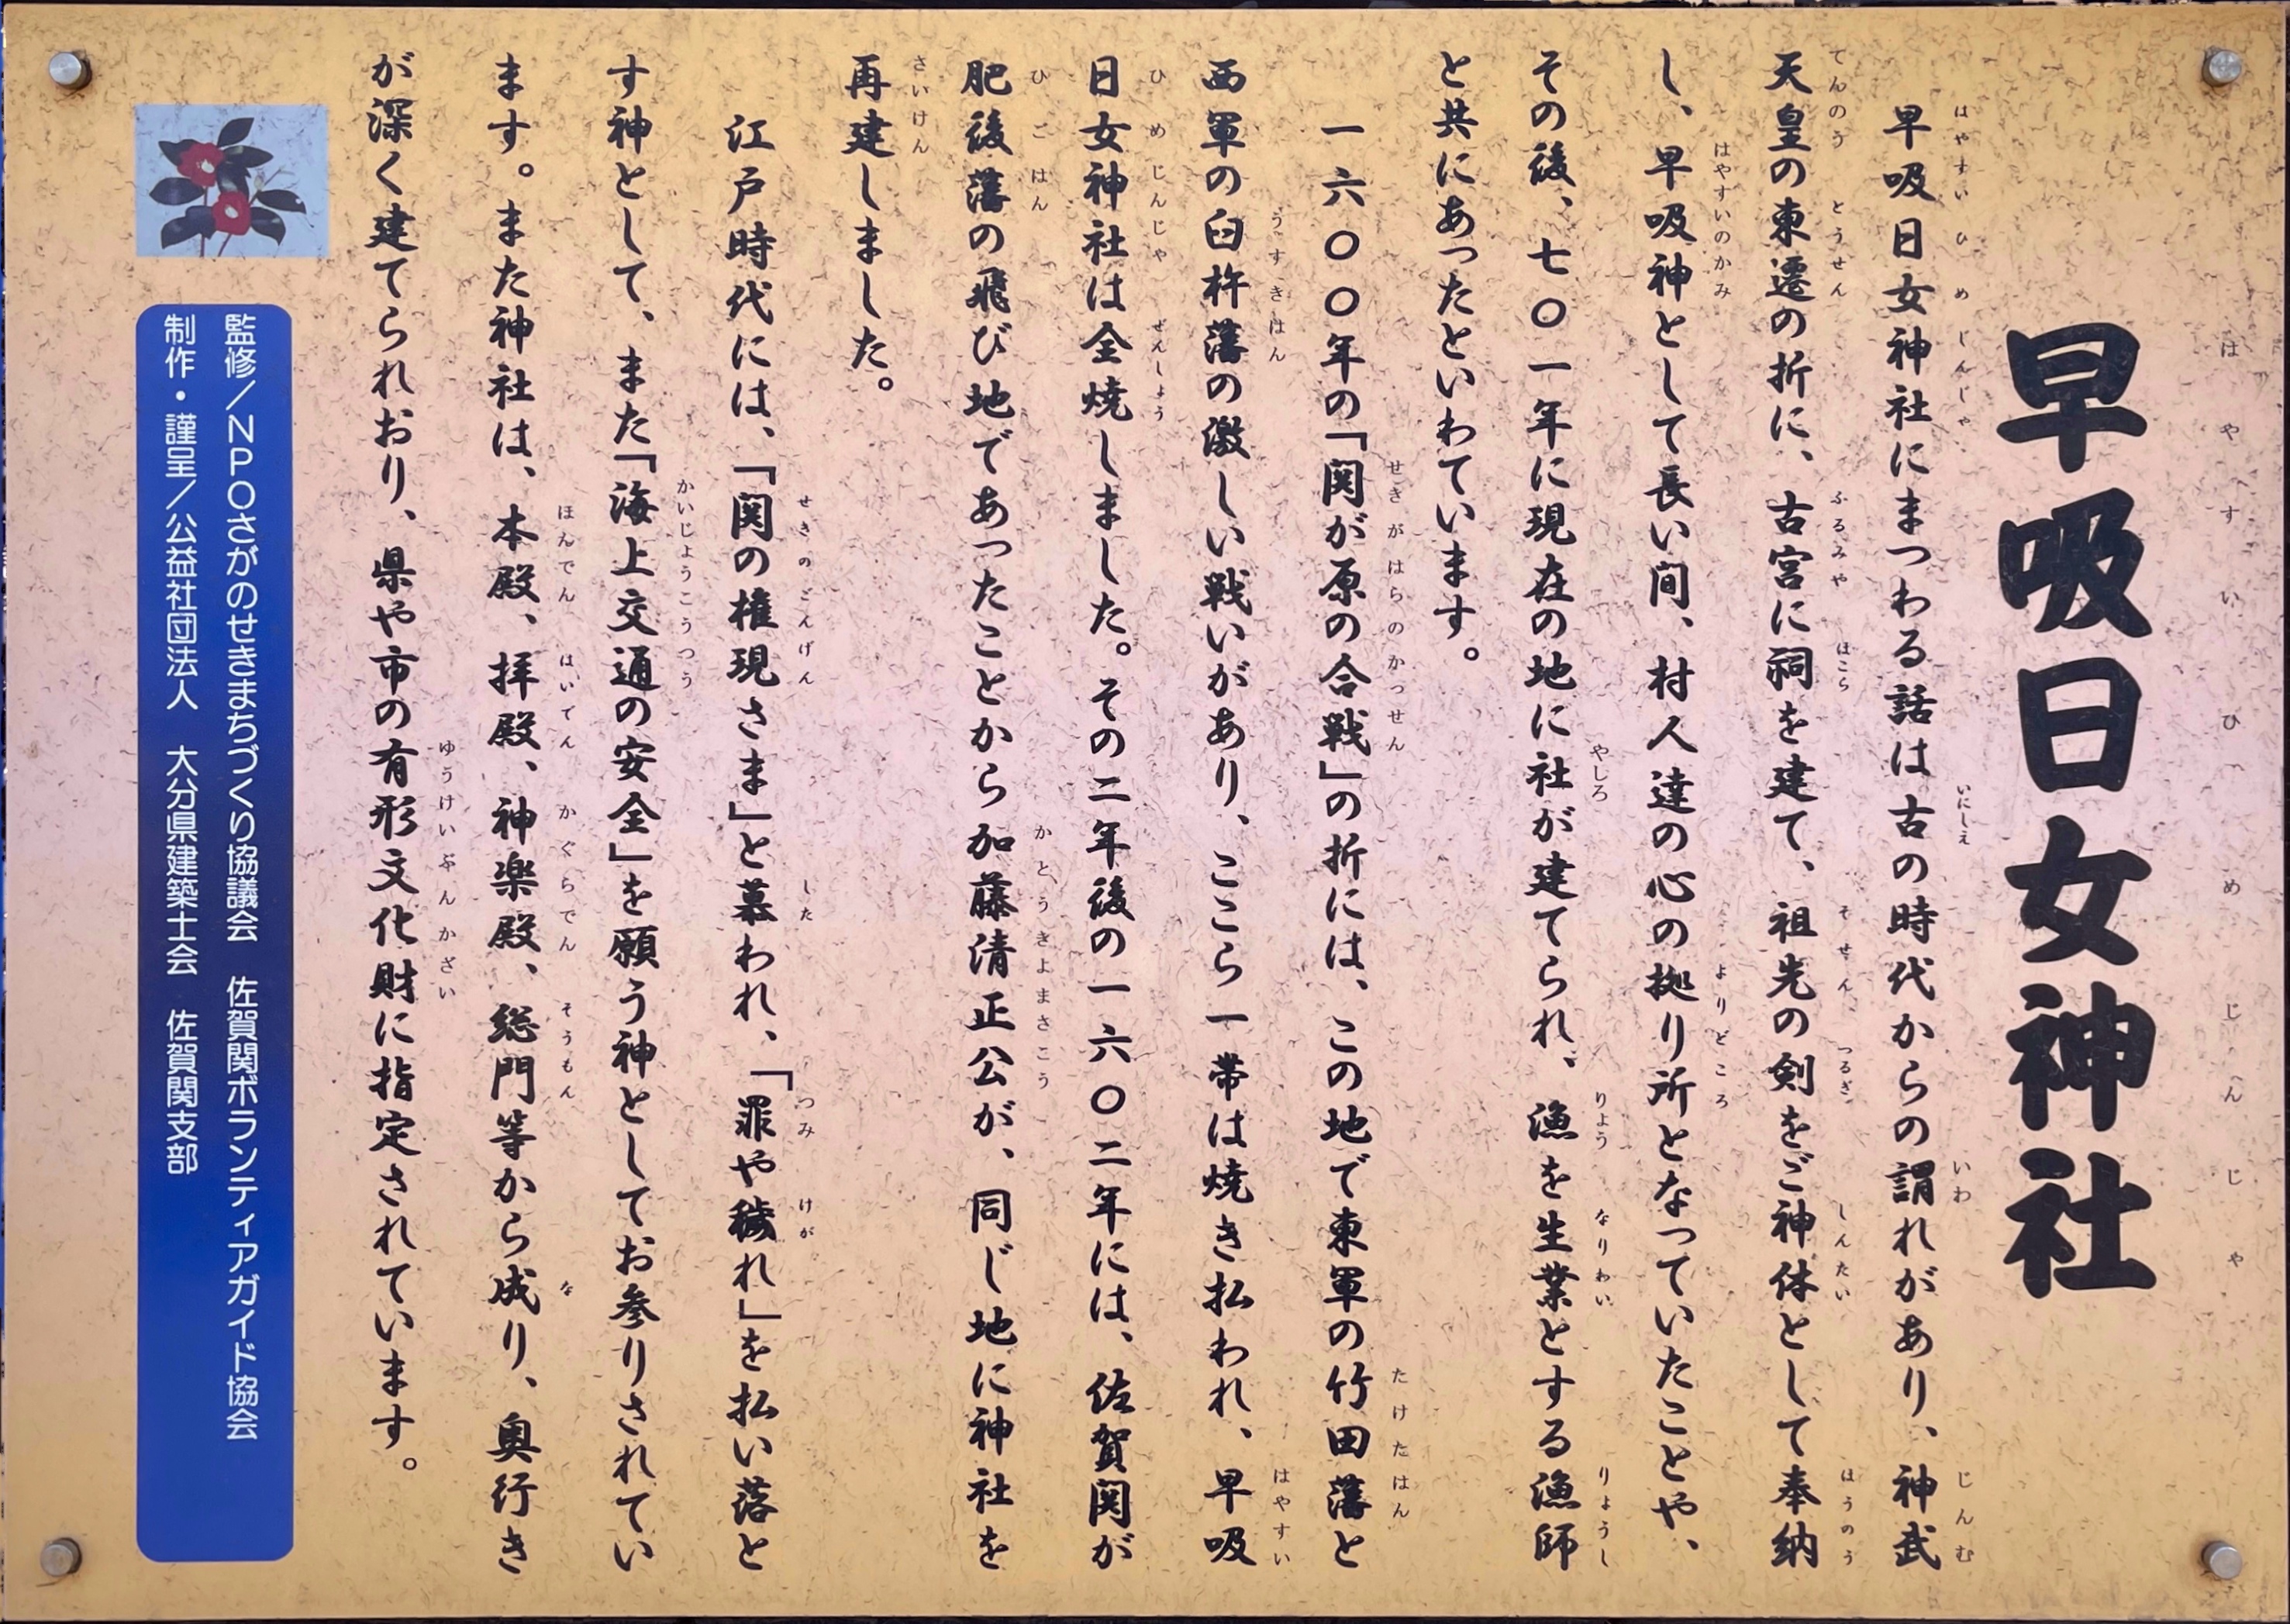 早吸日女神社
早吸日女神社にまつわる話は古の時代からの謂れがあり、神武
天皇の東遷の折に、古宮に祠を建て、祖先の剣をご神体として奉納
し、早吸神として長い間、村人達の心の拠り所となっていたことや、
その後、七〇一年に現在の地に社が建てられ、漁を生業とする漁師
と共にあったといわています。
一六〇〇年の「関が原の合戦」の折には、この地で東軍の竹田藩と
西軍の臼杵藩の激しい戦いがあり、ここら一帯は焼き払われ、早吸
日女神社は全焼しました。その二年後の一六〇二年には、佐賀関が
肥後藩の飛び地であったことから加藤清正公が、同じ地に神社を
再建しました。
江戸時代には、「関の権現さま」と慕われ、「罪や穢れ」を払い落と
す神として、また「海上交通の安全」を願う神としてお参りされてい
ます。また神社は、本殿、拝殿、神楽殿、総門等から成り、奥行き
が深く建てられおり、県や市の有形文化財に指定されています。
監修/NPOさがのせきまちづくり協議会 佐賀関ボランティアガイド協会
制作・謹呈/公益社団法人 大分県建築士会 佐賀関支部